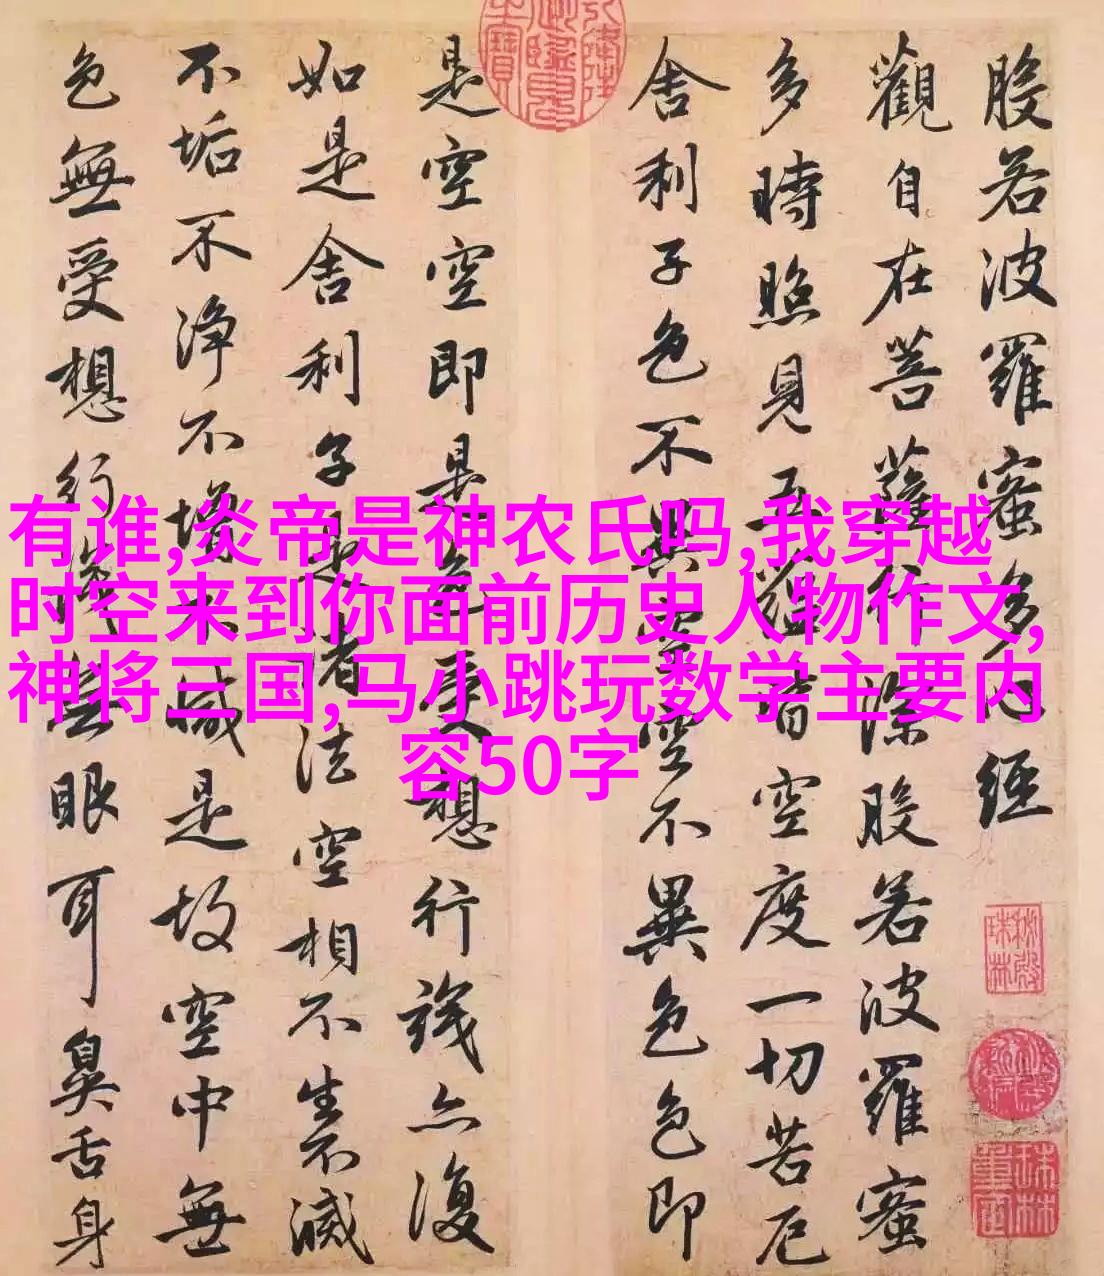 般若波羅蜜多心經
觀自在菩薩行深般若波羅蜜
多時照見五蘊皆空度一切苦厄
舍利子色不異空空不異色色即
是空空即是色受想行識亦復
如是舍利子是諸法空相不生不滅
不垢不淨不增不減是故空中無
色無受想行識無眼耳鼻舌身
有谁,炎帝是神农氏吗,我穿越
时空来到你面前历史人物作文,
神将三国,马小跳玩数学主要内
容50字